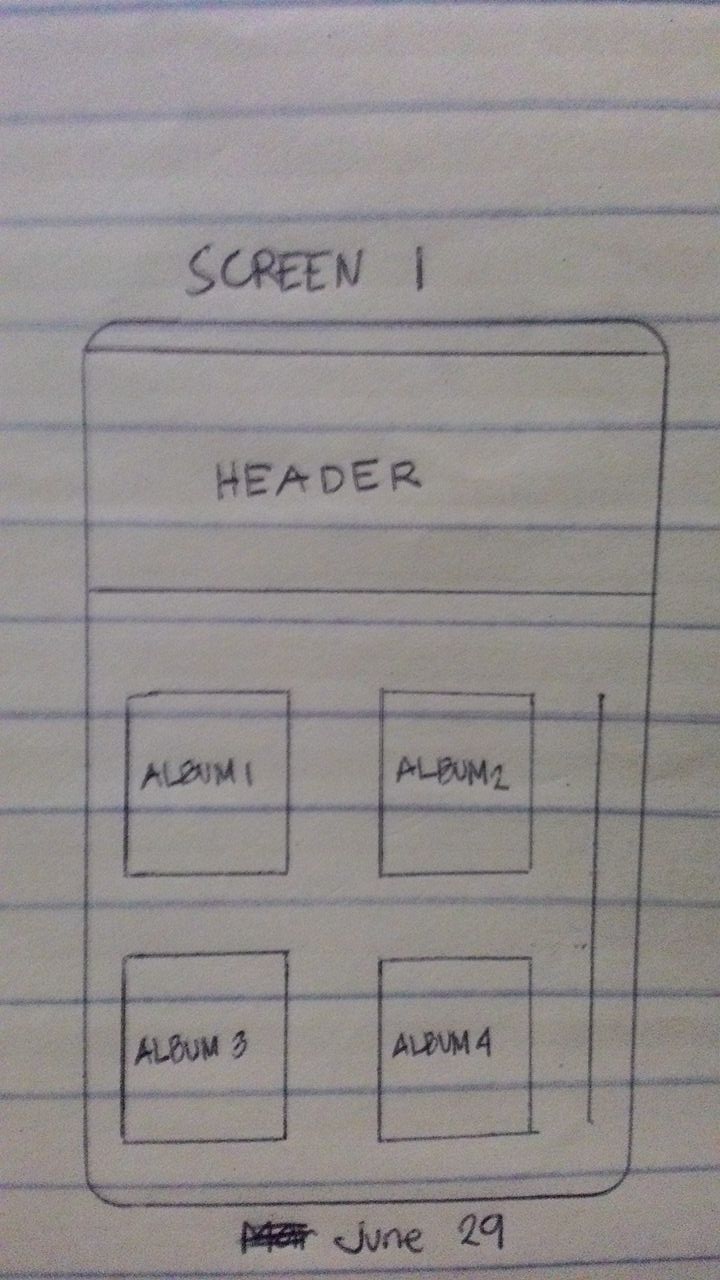 SCREEN 1
HEADER
ALBUM 1 ALBUM 2
ALBUM 3 ALBUM 4
June 29